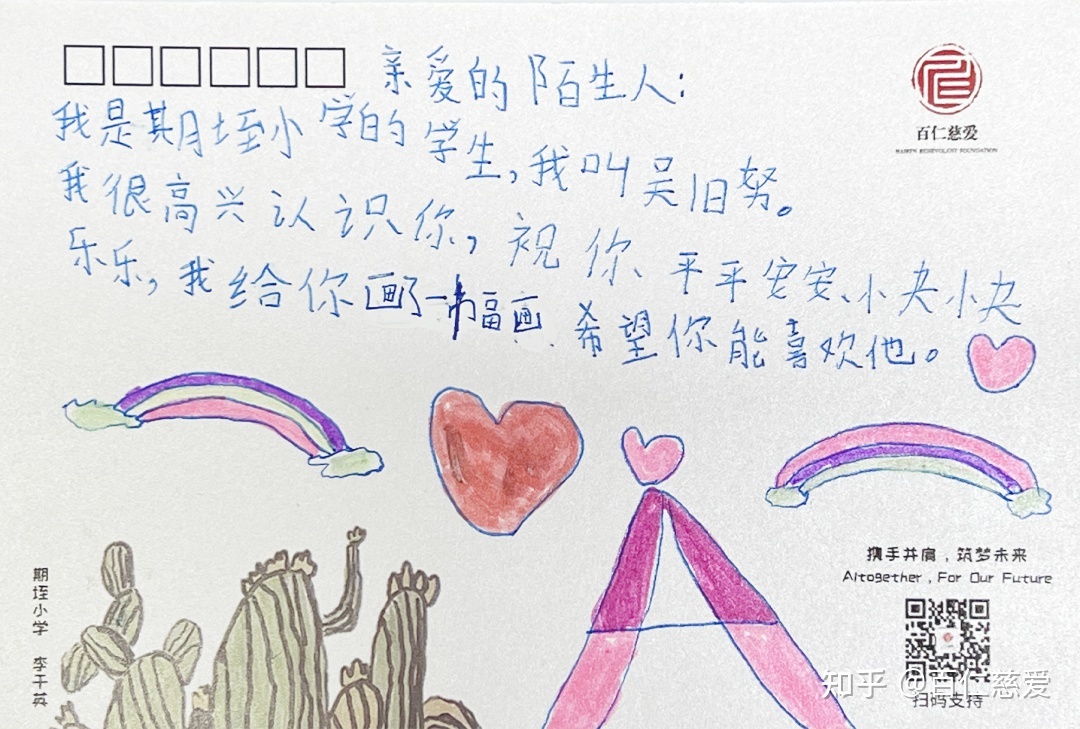 亲爱的陌生人：
我是期垤小学的学生，我叫吴旧努。
我很高兴认识你，祝你、平平安安、小夬小夬
乐乐，我给你画了一幅画 希望你能喜欢他。
百仁慈爱
BAIREN BENEVOLENT FOUNDATION
携手并肩，筑梦未来
Altogether, For Our Future
扫码支持
期垤小学 李干英
知乎 @百仁慈爱